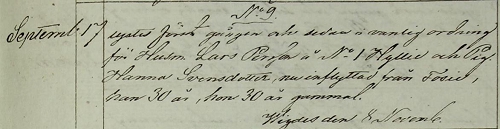 No 9.
Septemb. 17 lystes första gången och sedan i vanlig ordning
för Husm. Lars Persson å No 1 Hyllie och Pig.
Hanna Svensdotter, nu inflyttad från Fosie,
han 30 år, hon 30 år gammal.
Vigdes den 8 Novemb.